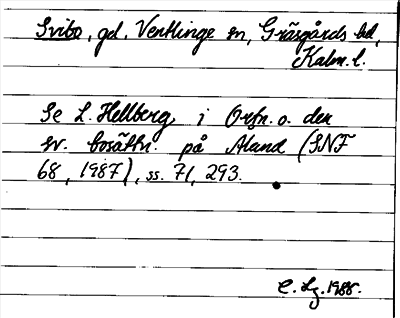 Svibo, gd, Ventlinge sn, Gräsgårds hd,
Kalm. l.
Se L. Hellberg, i Ortn. o. den
sv. bosättn. på Åland (SNF
68, 1987), ss. 71, 293.
C. Lg. 1988.